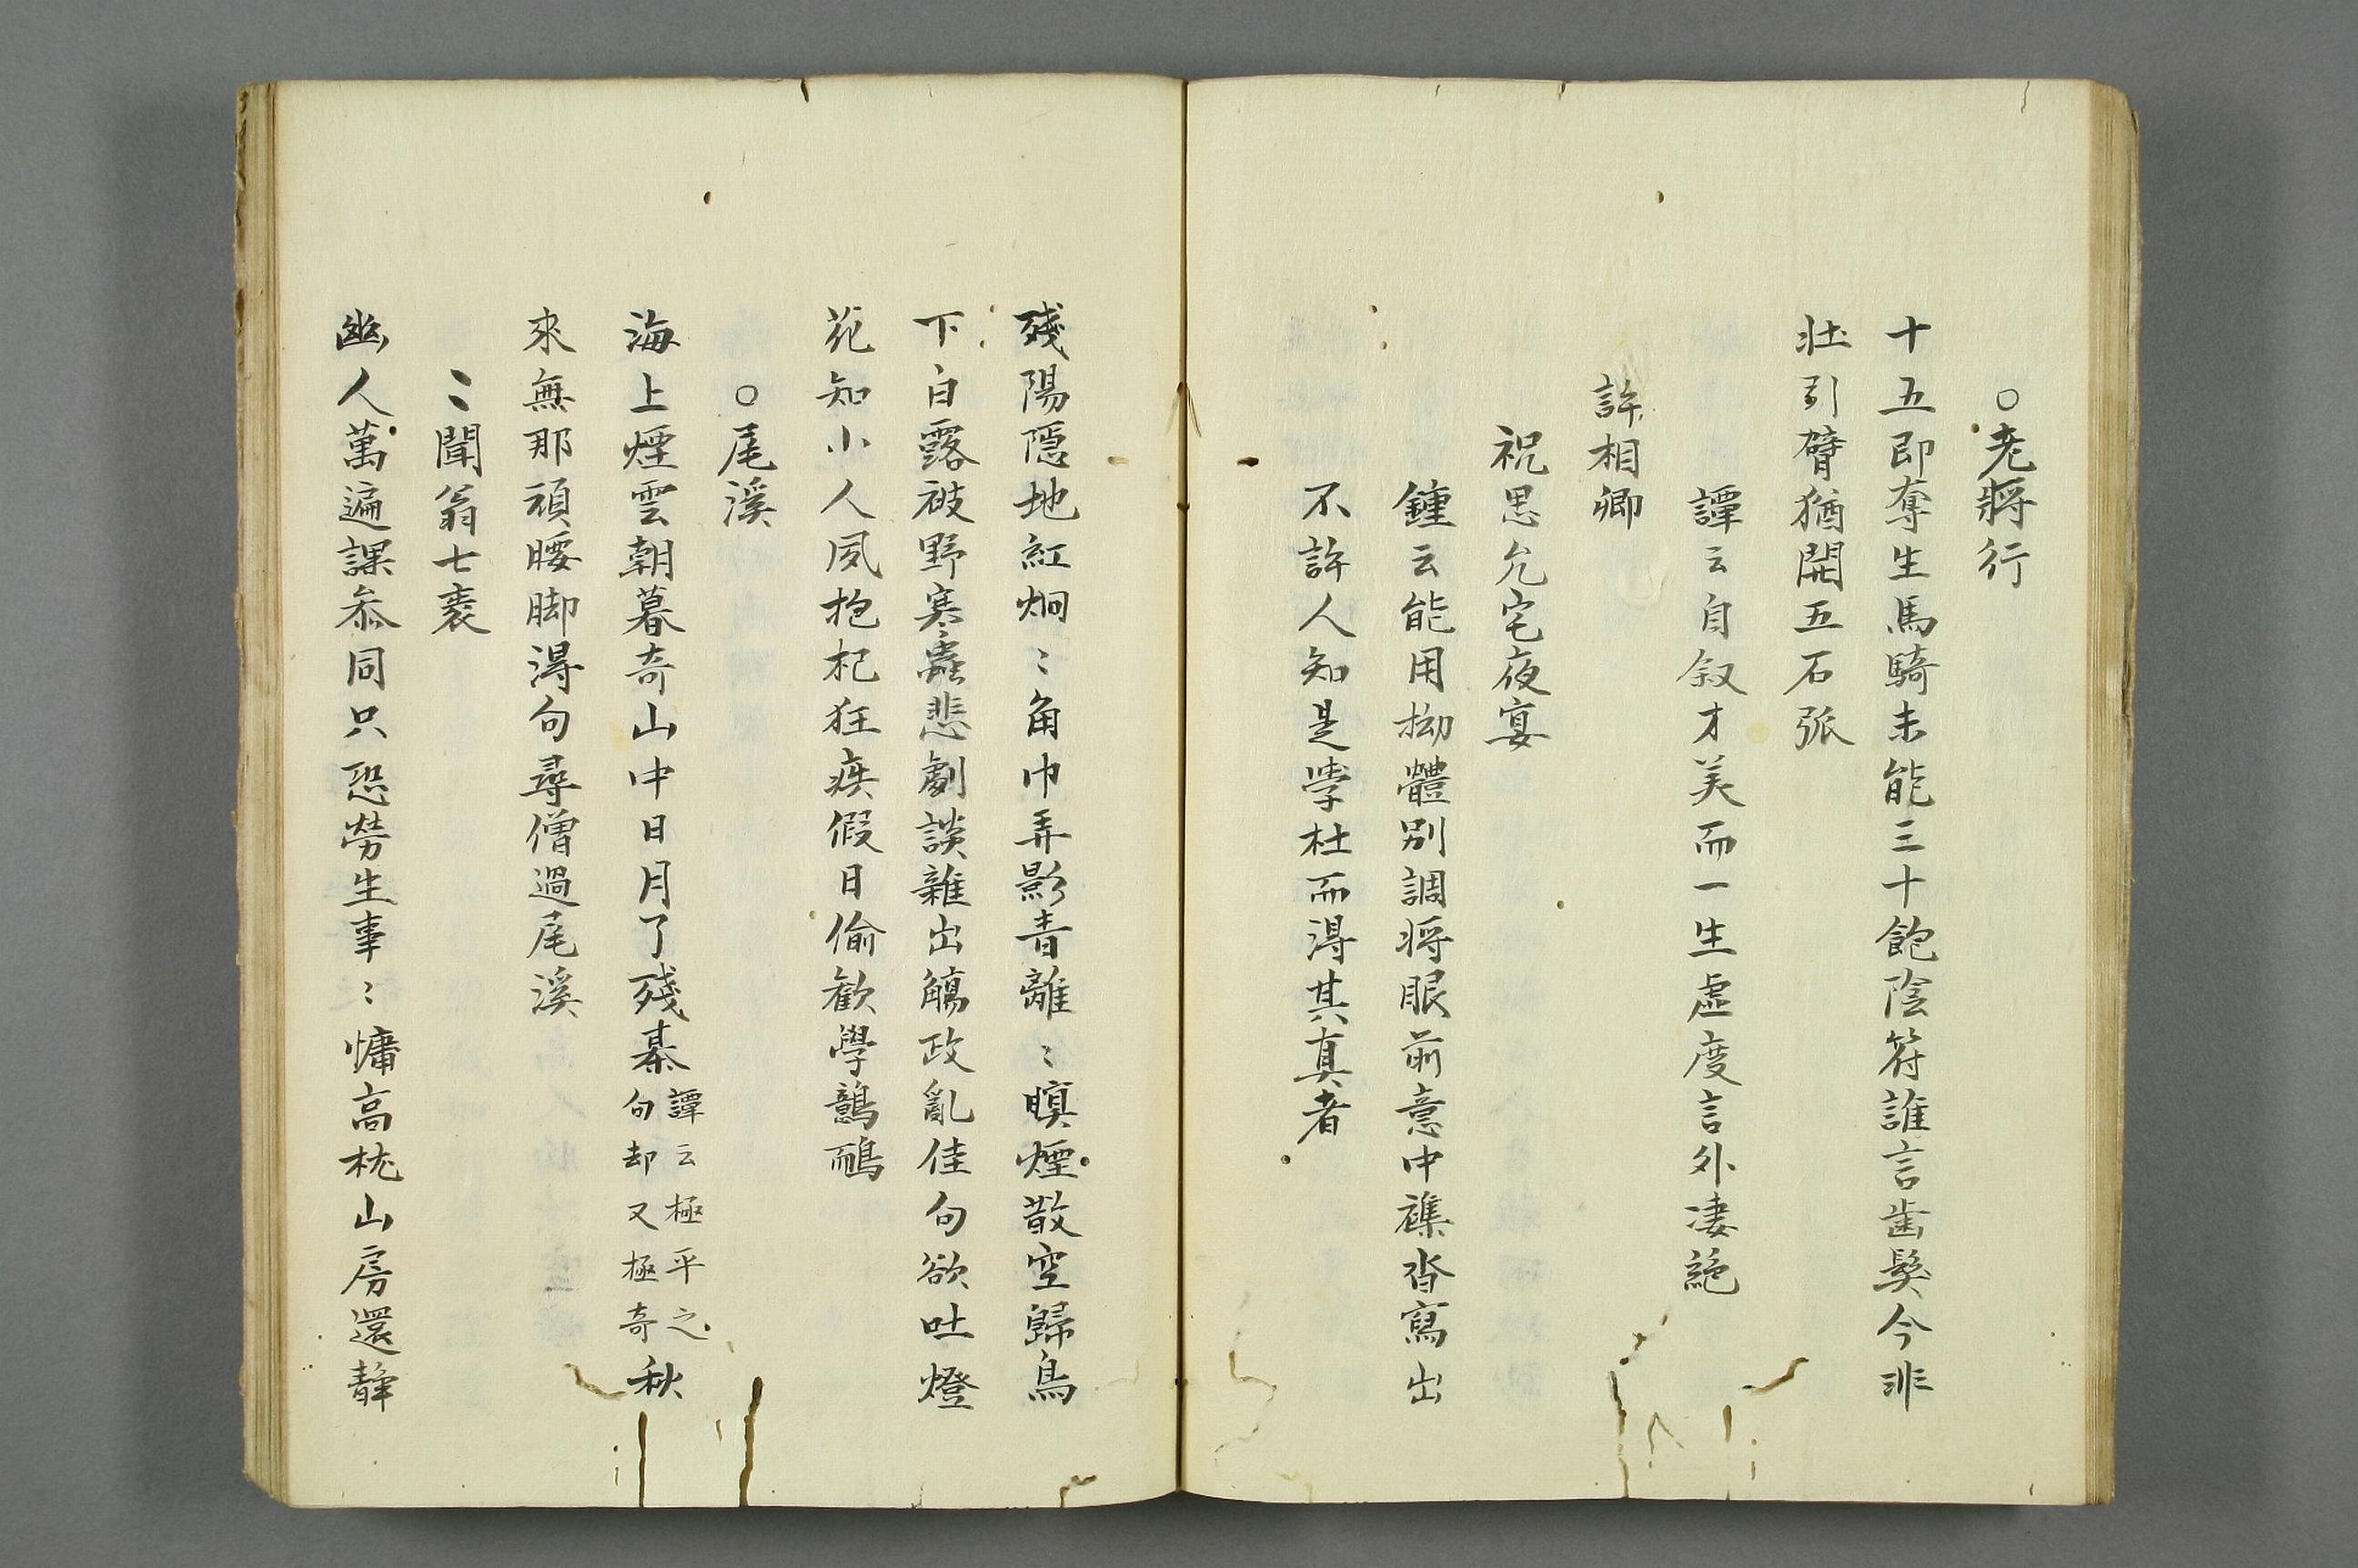 ○老將行
十五即奪生馬騎未能三十飽陰符誰言齒髮今非
壯引臂猶開五石弧
譚云自叙才美而一生虛度言外凄絶
許相卿
祝思允宅夜宴
鍾云能用拗體別調將眼前意中襍沓寫出
不許人知是學杜而得其真者
殘陽隱地紅炯〻角巾弄影青離〻暝煙散空歸鳥
下白露被野寒蟲悲劇談雜出觴政亂佳句欲吐燈
花知小人夙抱杞狂疾假日偷歡學鷾鴯
○尾溪
海上煙雲朝暮奇山中日月了殘棊譚云極平之句却又極奇秋
來無那頑腰脚得句尋僧過尾溪
〻聞翁七袠
幽人萬遍課叅同只恐勞生事〻慵高枕山房還靜